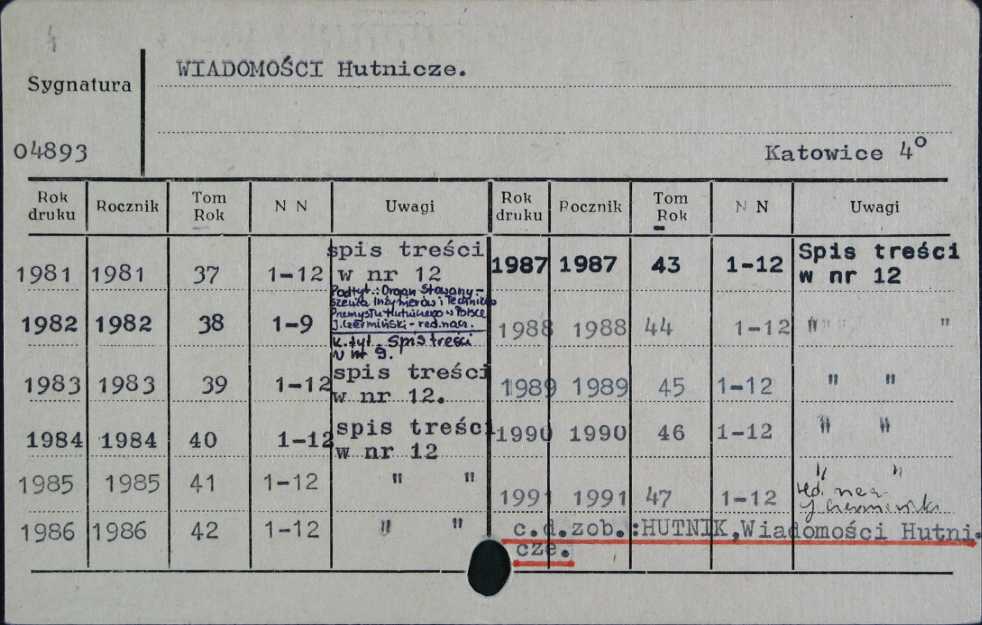 WIADOMOŚCI Hutnicze.
Sygnatura
04893
Katowice 4°
Rok druku Rocznik Tom Rok N N Uwagi Rok druku Rocznik Tom Rok N N Uwagi
1981 1981 37 1-12 spis treści
w nr 12
Podtyt.: Organ Stowarzy-
szenia Inżynierów i Techników
Przemysłu Hutniczego w Polsce
J. Czermiński - red. nacz.
1982 1982 38 1-9 K. tyt. Spis treści
w nr 9.
1983 1983 39 1-12 spis treści
w nr 12.
1984 1984 40 1-12 spis treści
w nr 12
1985 1985 41 1-12 " "
1986 1986 42 1-12 " "
1987 1987 43 1-12 Spis treści
w nr 12
1988 1988 44 1-12 " "
1989 1989 45 1-12 " "
1990 1990 46 1-12 " "
1991 1991 47 1-12 " "
red.
c.d.zob.:HUTNIK,Wiadomości Hutni.
cze.